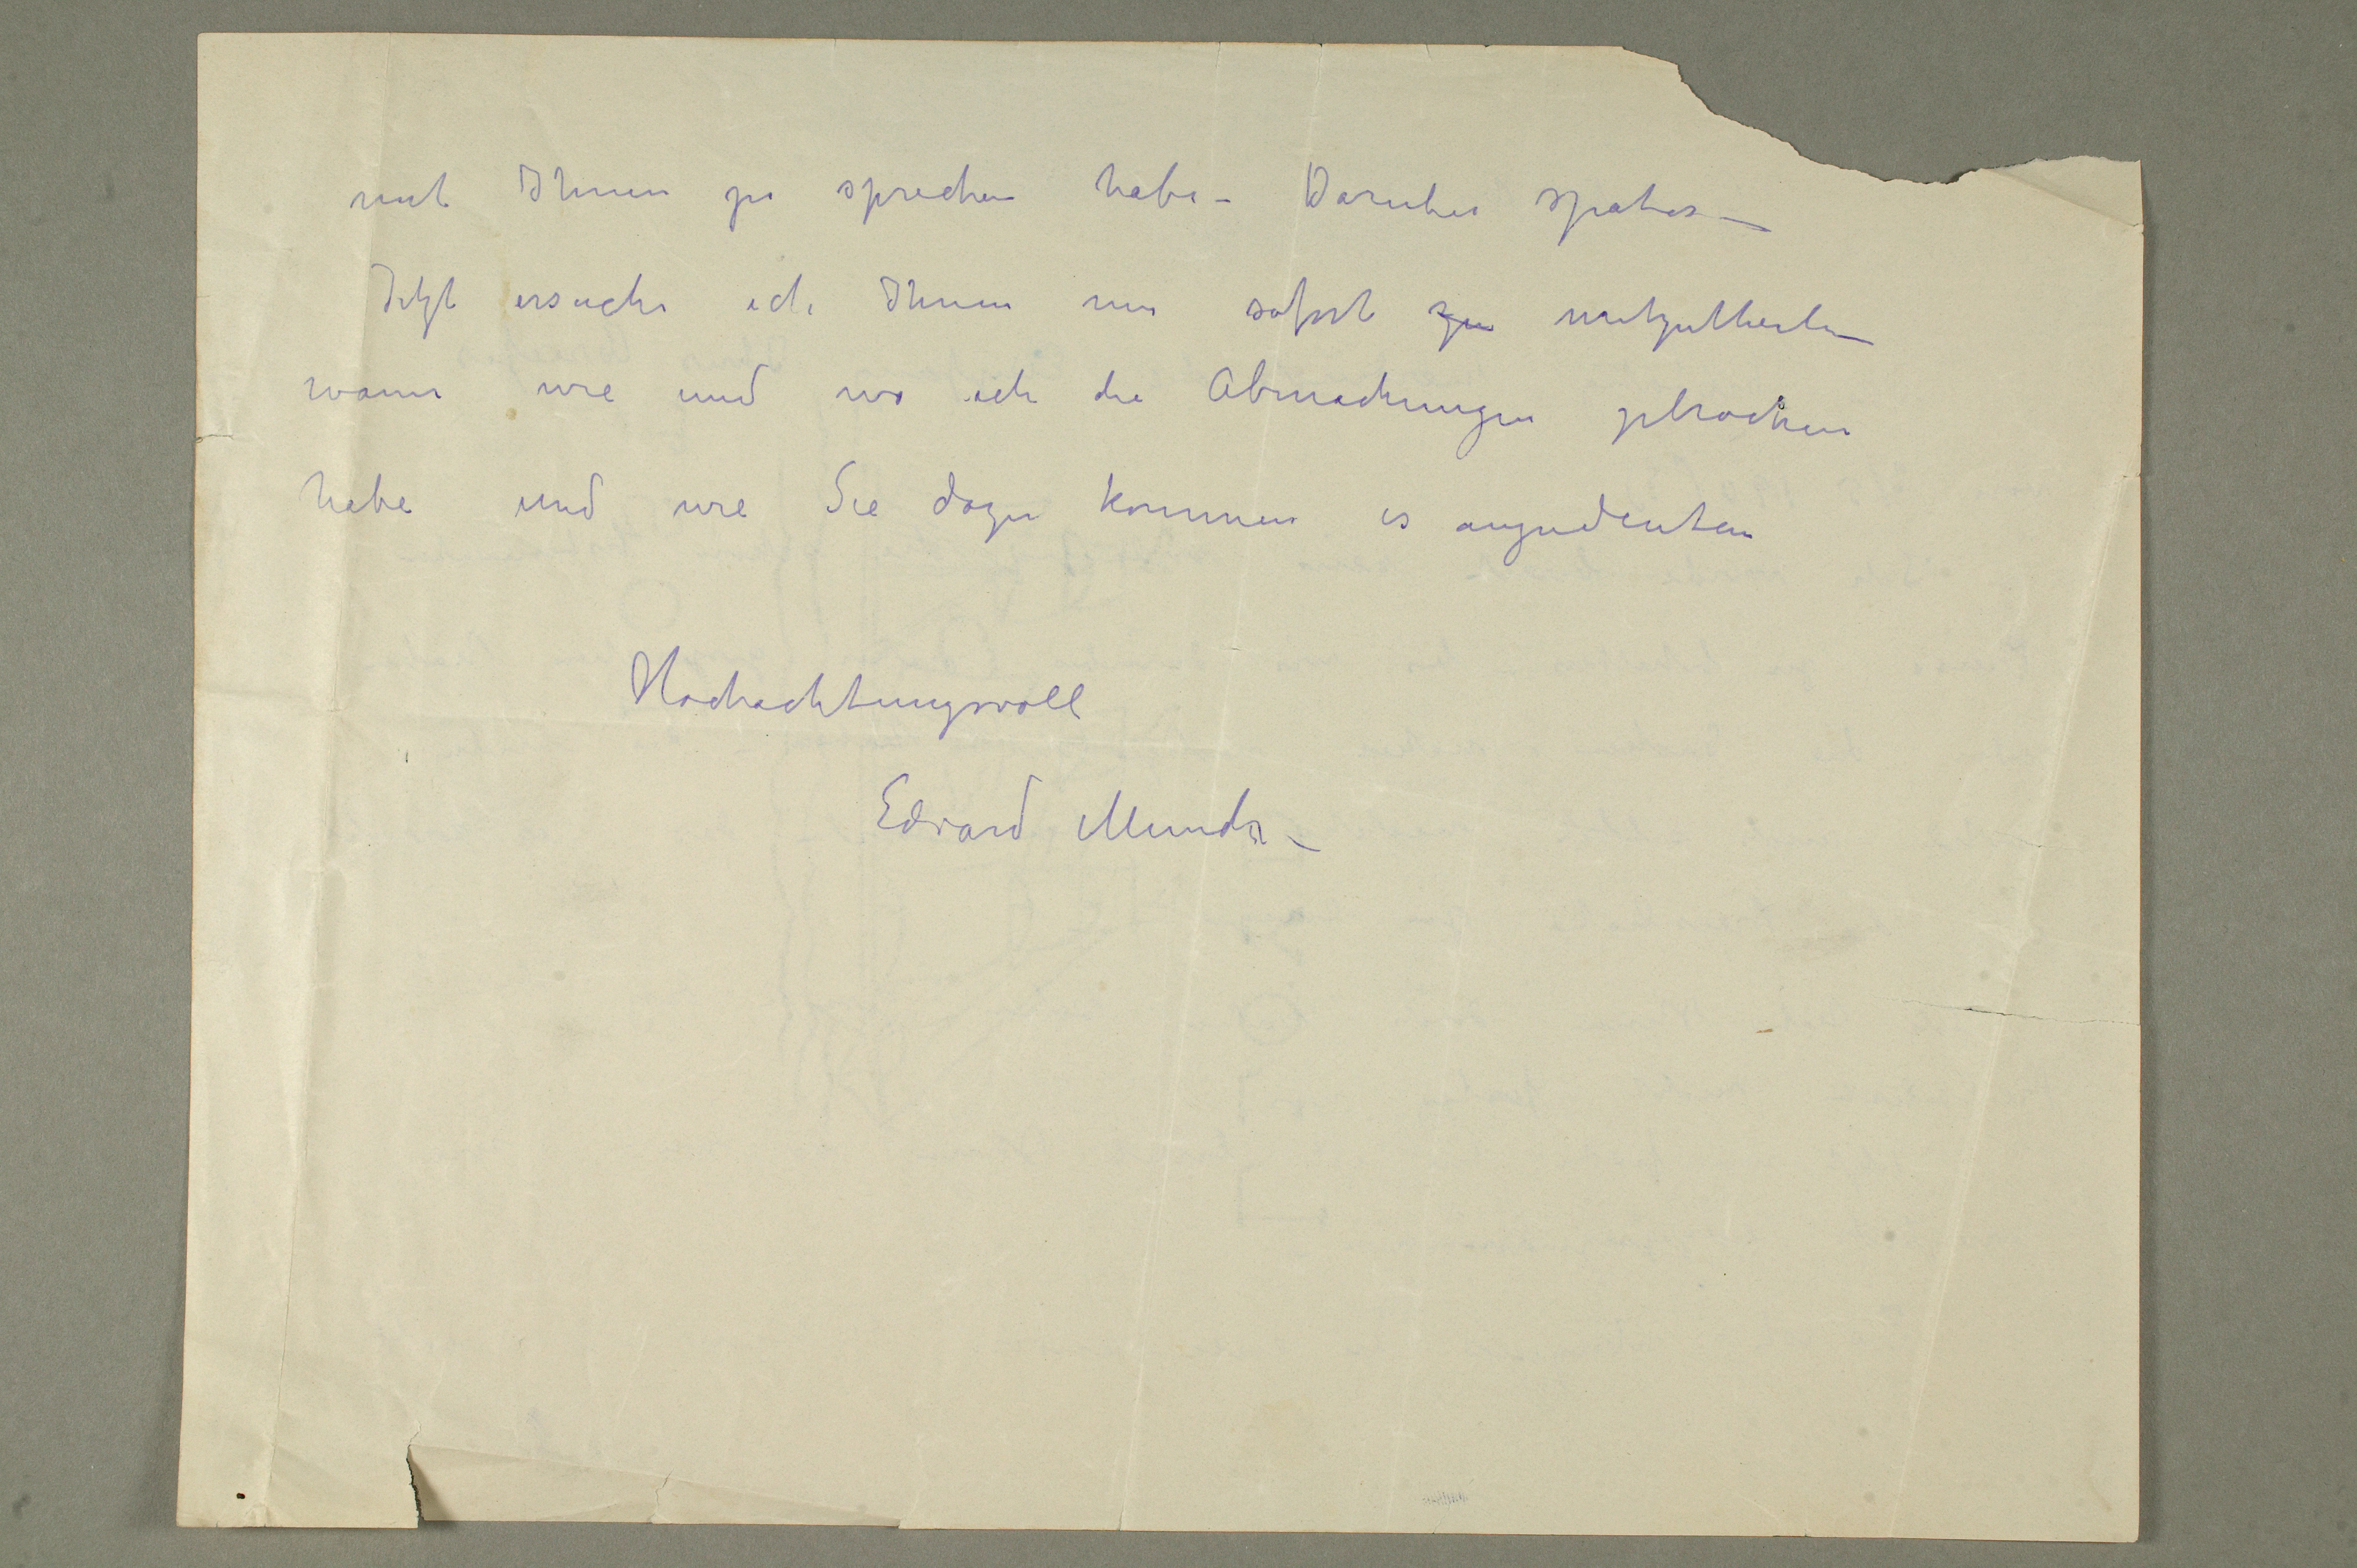 mit Ihnen zu sprechen habe – Daruber spater –
Jetzt ersuche ich Ihnen mir sofort zu mitzutheilen
wann wie und wo ich die Abmachungen gebrochen
habe und wie Sie dazu kommen es anzudeuten
Hochachtungsvoll
Edvard Munch –